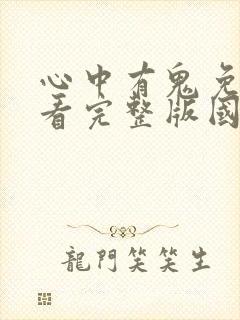 心中有鬼免
看完整版國
龍門笑笑生